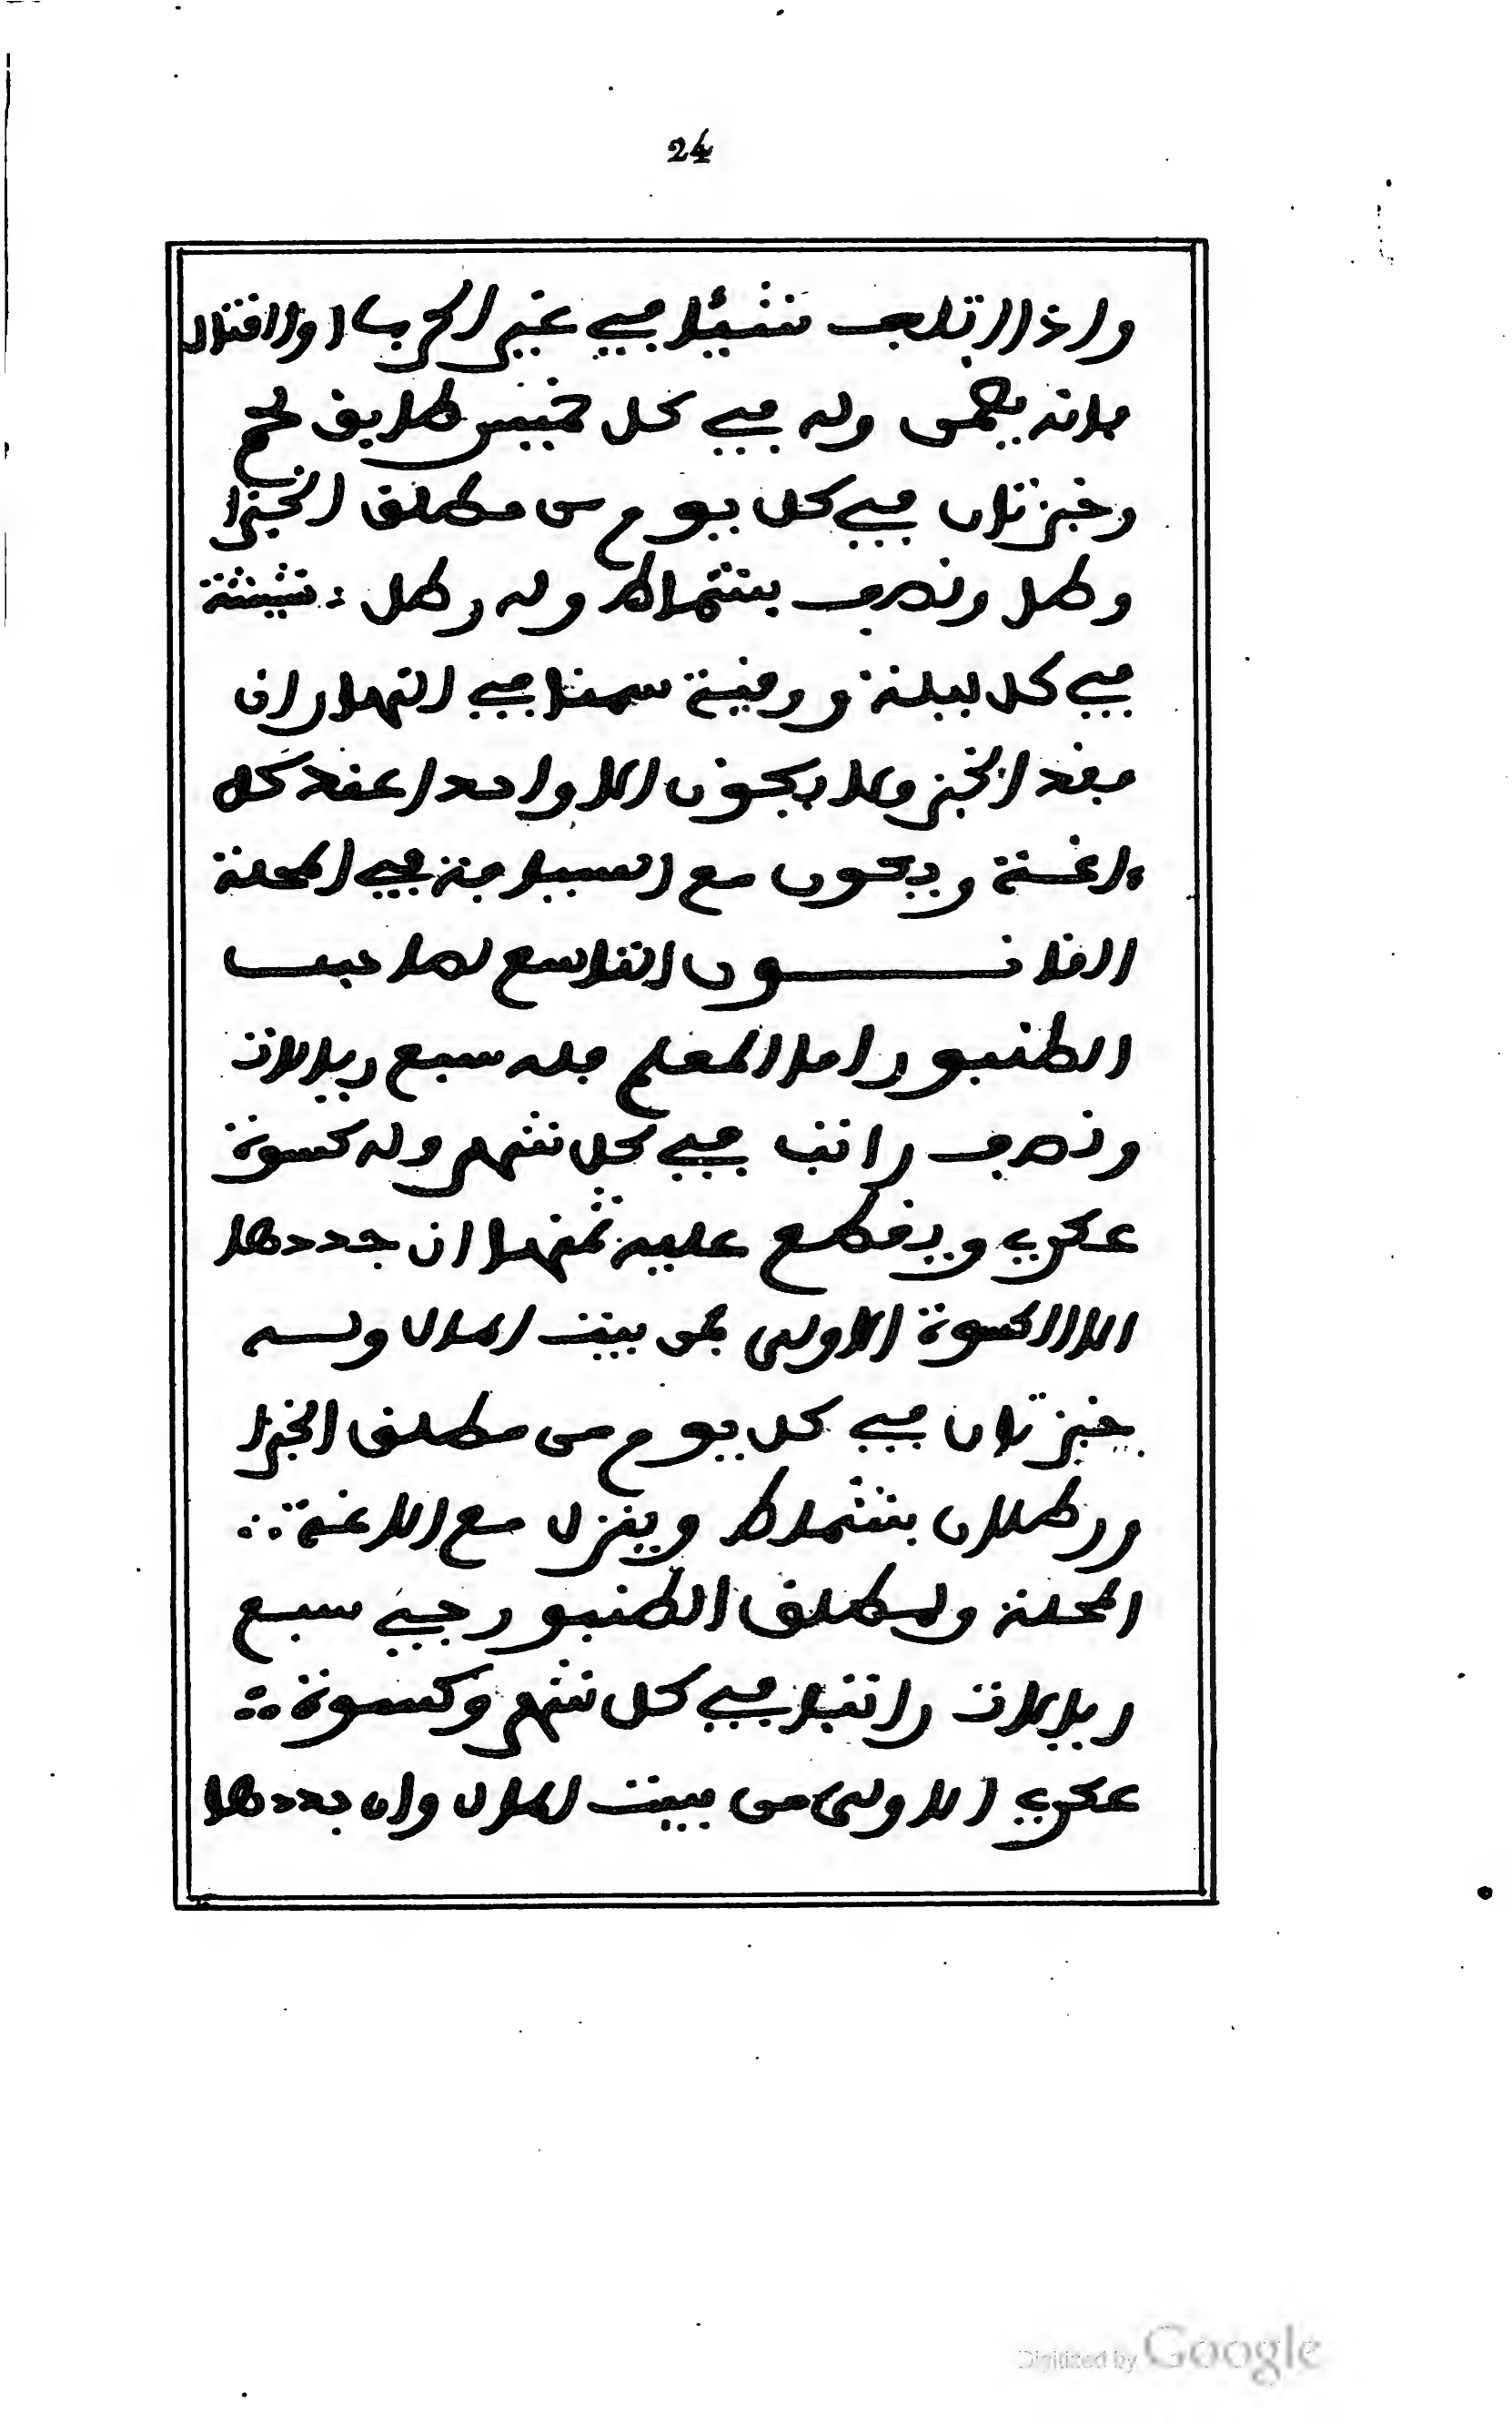 24
واذا اتلف شيئا في غير الحرب او القتال
فانه يضمن وله في كل خميس طابق لحم
وخبزتان في كل يوم من مطلق الخبز
وطل ونصف بشماط وله رطل شيشة
في كل ليلة ووقية سمنا في النهار ان
فقد الخبز ولا يكون الا واحدا عند كل
اغـة ويكون مع السيافة في المحلة
القانـــون التاسع لصاحب
الطنبور اما المعلم فله سبع ريالات
ونصف راتب في كل شهر وله كسوة
عكري ويقطع عليه ثمنها ان جددها
الا الكسوة الاولى فمن بيت المال ولـه
خبزتان في كل يوم من مطلق الخبز
ورطلان بشماط وينزل مع الاغة
المحلة ولمطلق الطنبورجي سبع
ريالات راتبا في كل شهر وكسوة
عكري الاولى من بيت المال وان جددها
Digitized by Google